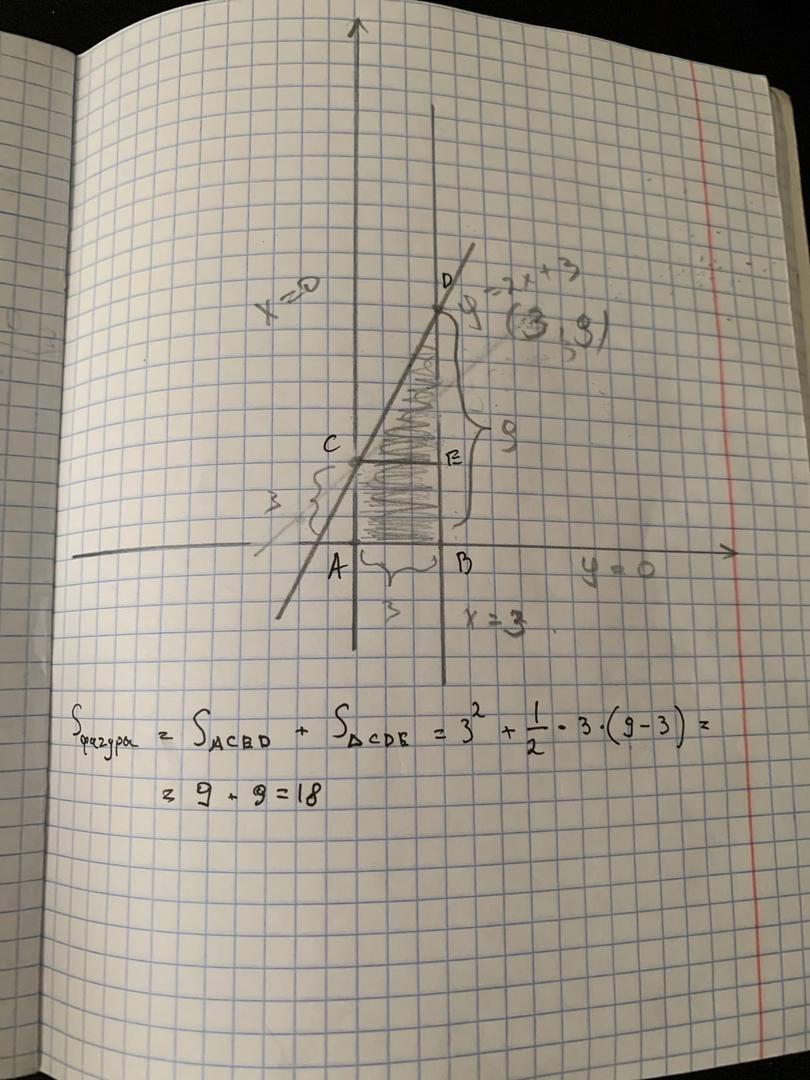 D
x = 0
y = 2x + 3
(3, 9)
C
9
E
3
A
B
y = 0
3
x = 3
Sфигура = SACBD + SΔCDE = 3² + 1/2 · 3 · (9 - 3) =
= 9 + 9 = 18